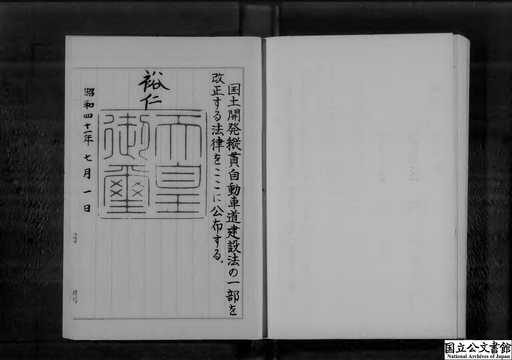 国土開発縦貫自動車道建設法の一部を
改正する法律をここに公布する。
裕仁
天皇
御璽
昭和四十一年七月一日
国立公文書館
National Archives of Japan